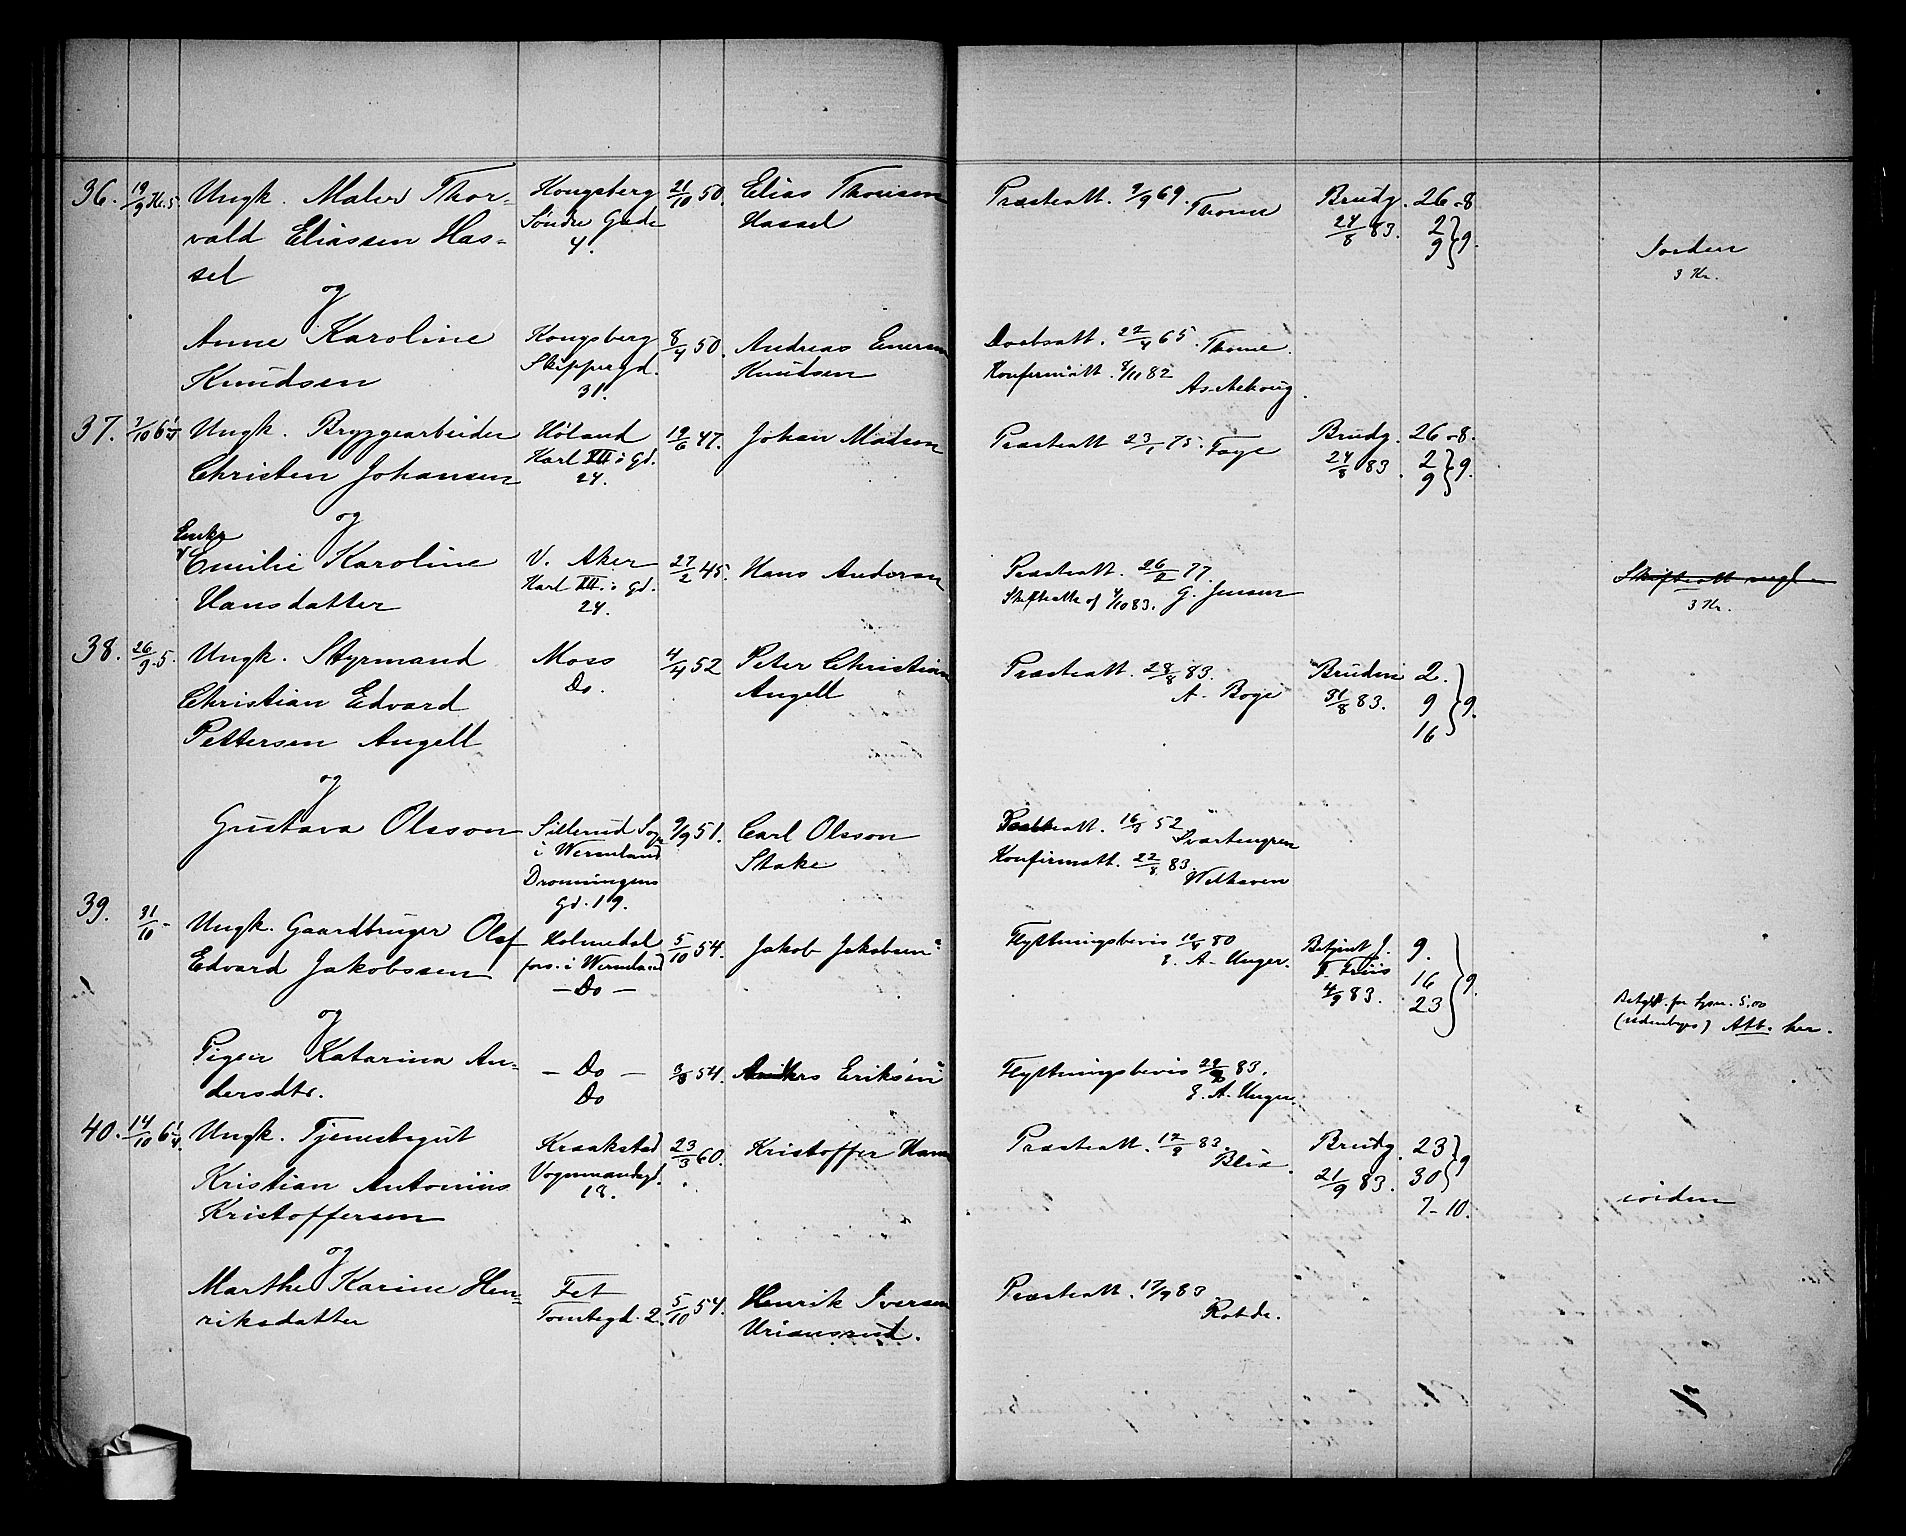 36. 19/9 Kl. 5. Ungk. Maler Thor- Kongsberg 21/10 50. Elias Thorsen Præsteatt. 7/9 69. Thome Brudg. 26-8
vald Eliassen Has- Søndre Gade Hassel 24/8 83. 2 } 9.
sel 4. 9
iorden
3 Kr.
og
Anne Karoline Kongsberg 8/4 50. Andreas Enersen Døbsatt. 22/4 65. Thome.
Knudsen Skippergd. Knudsen Konfirmatt. 7/11 82
31. Aschehoug.
37. 7/10 6 1/4 Ungk. Bryggearbeider Høland 19/6 47. Johan Madsen Præsteatt 23/1 75. Faye Brudg. 26-8.
Christen Johansen Karl XII's Gd. 24/8 83. 2 } 9.
24. 9
og
Enke
Emilie Karoline V. Aker 27/2 45. Hans Andersen Præsteatt. 26/2 77. Skifteatt mgl
Hansdatter Karl XII's Gd. Skifteatt af 4/10 83. G. Jensen 3 Kr.
24.
38. 26/9 - 5. Ungk. Styrmand Moss 4/4 52 Peter Christian Præsteatt. 28/8 83. Bruden 2.
Christian Edvard Do. Angell A. Boge 31/8 83. 9 } 9.
Pettersen Angell 16
og
Gustava Olsson Sillerud Sogn 9/9 51. Carl Olsson att. 16/ 52 Svartengren
i Wermland Stake Konfirmatt. 22/8 83.
Dronningens Welhaven
Gd. 19.
39. 31/10 - Ungk. Gaardbruger Olaf Holmedal 5/10 54. Jakob Jakobsen Flyttningsbevis 10/4 80 Betjent J. 9.
Edvard Jakobssen fors. i Wermland E. A. Unger. F. Friis 16 } 9.
- Do - 4/9 83. 23
Betalt for lysn. 5.00
(udenbys) Att. her.
og
Pigen Katarina An- - Do - 3/8 54. Anders Eriksen Flyttningsbevis 83.
dersdtr. Do E. A. Unger.
40. 14/10 6 1/4 Ungk. Tjenestegut Kraakstad 23/3 60. Kristoffer Hans Præsteatt. 12/9 83 Brudg. 23 } 9
Kristian Antonius Vognmandsgd. Blix. 21/9 83. 30
Kristoffersen 18. 7-10.
iorden
og
Marthe Karine Hen- Fet 5/10 54. Henrik Iversen Præsteatt. 17/9 83
riksdatter Tomtegd. 2. Uriansrud. Rohde.